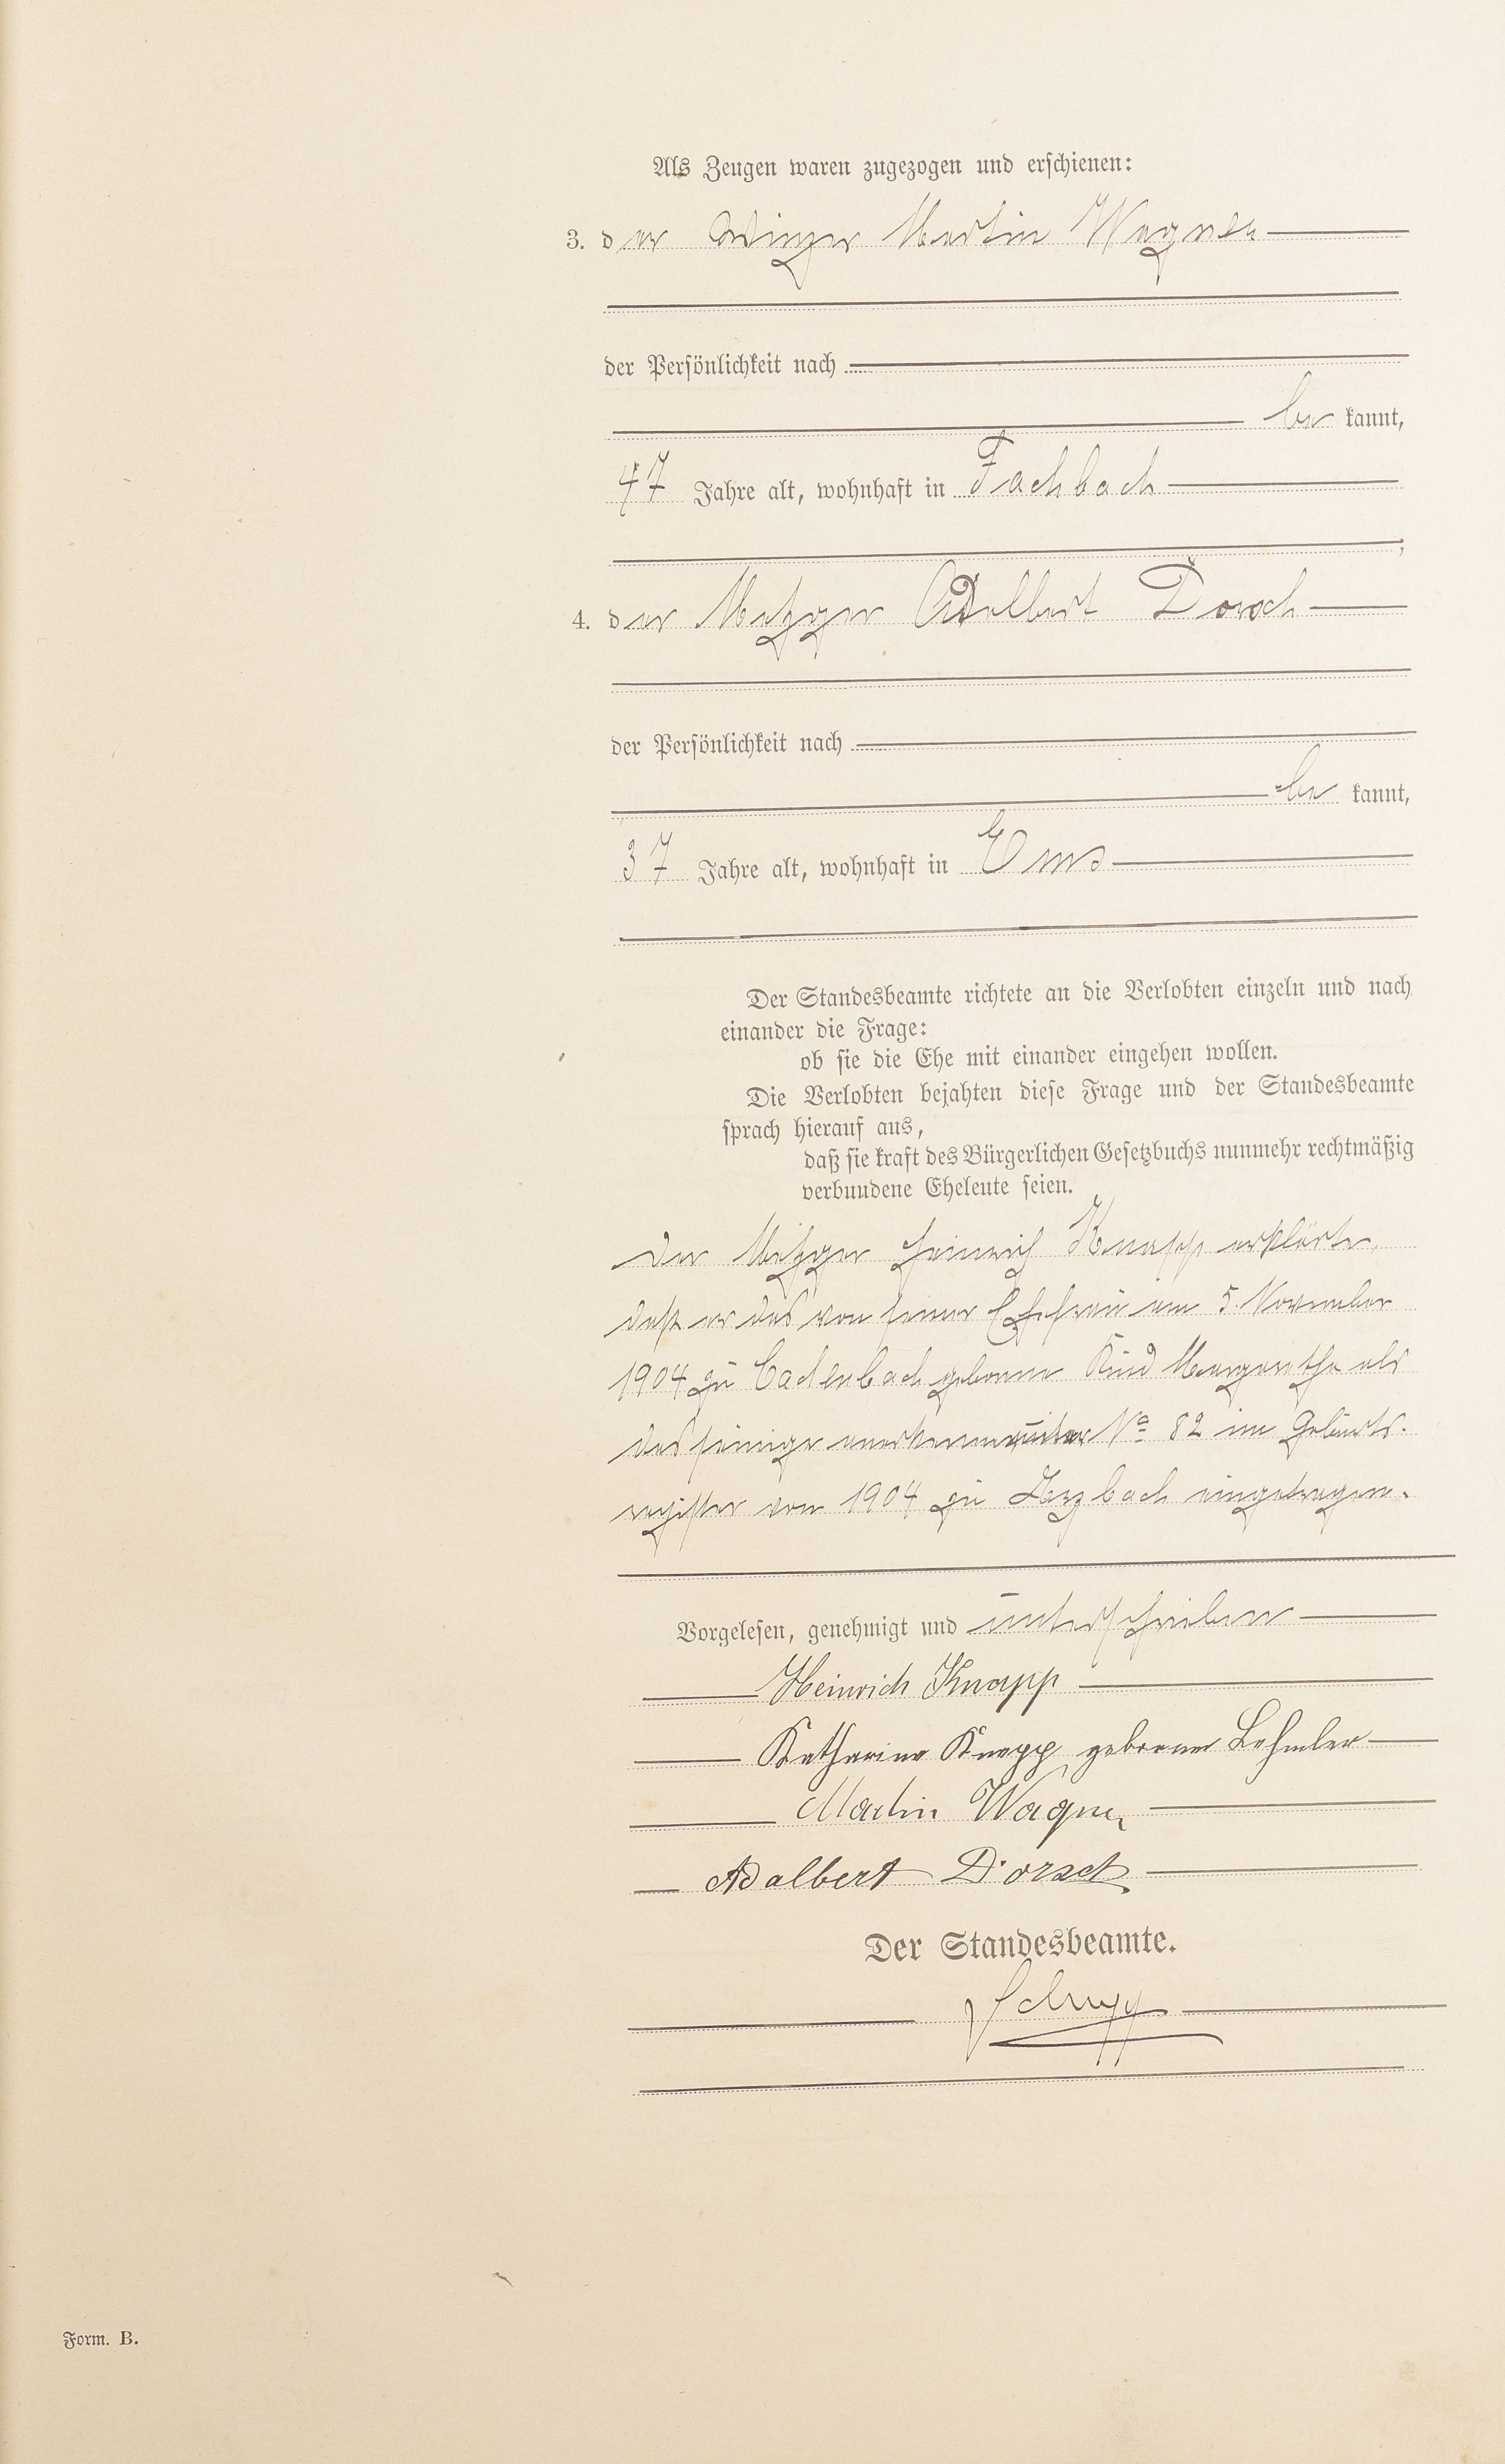 Als Zeugen waren zugezogen und erschienen:
3. der Winzer Martin Wagner
der Persönlichkeit nach
be kannt,
47 Jahre alt, wohnhaft in Fachbach
;
4. der Metzger Adalbert Dorsch
der Persönlichkeit nach
be kannt,
37 Jahre alt, wohnhaft in Ems
Der Standesbeamte richtete an die Verlobten einzeln und nach
einander die Frage:
ob sie die Ehe mit einander eingehen wollen.
Die Verlobten bejahten diese Frage und der Standesbeamte
sprach hierauf aus,
daß sie kraft des Bürgerlichen Gesetzbuchs nunmehr rechtmäßig
verbundene Eheleute seien.
Der Metzger Heinrich Knapp erklärte,
daß er das von seiner Ehefrau am 5. November
1904 zu Cadenbach geborene Kind Margarethe als
das seinige anerkenne unter No 82 im Geburts-
register von 1904 zu Arzbach eingetragen.
Vorgelesen, genehmigt und unterschrieben
Heinrich Knapp
Katharina Knapp geborene Lehmler
Martin Wagner
Adalbert Dorsch
Der Standesbeamte.
Schupp
Form. B.